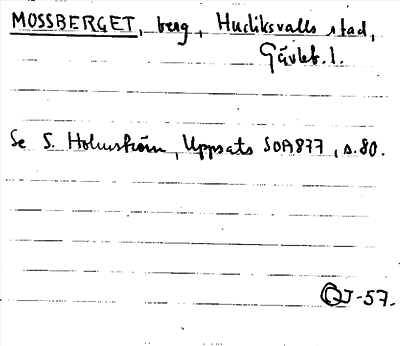 MOSSBERGET, berg, Hudiksvalls stad,
Gävleb. l.
Se S. Holmström, Uppsats SOA877, s. 80.
OJ-57.